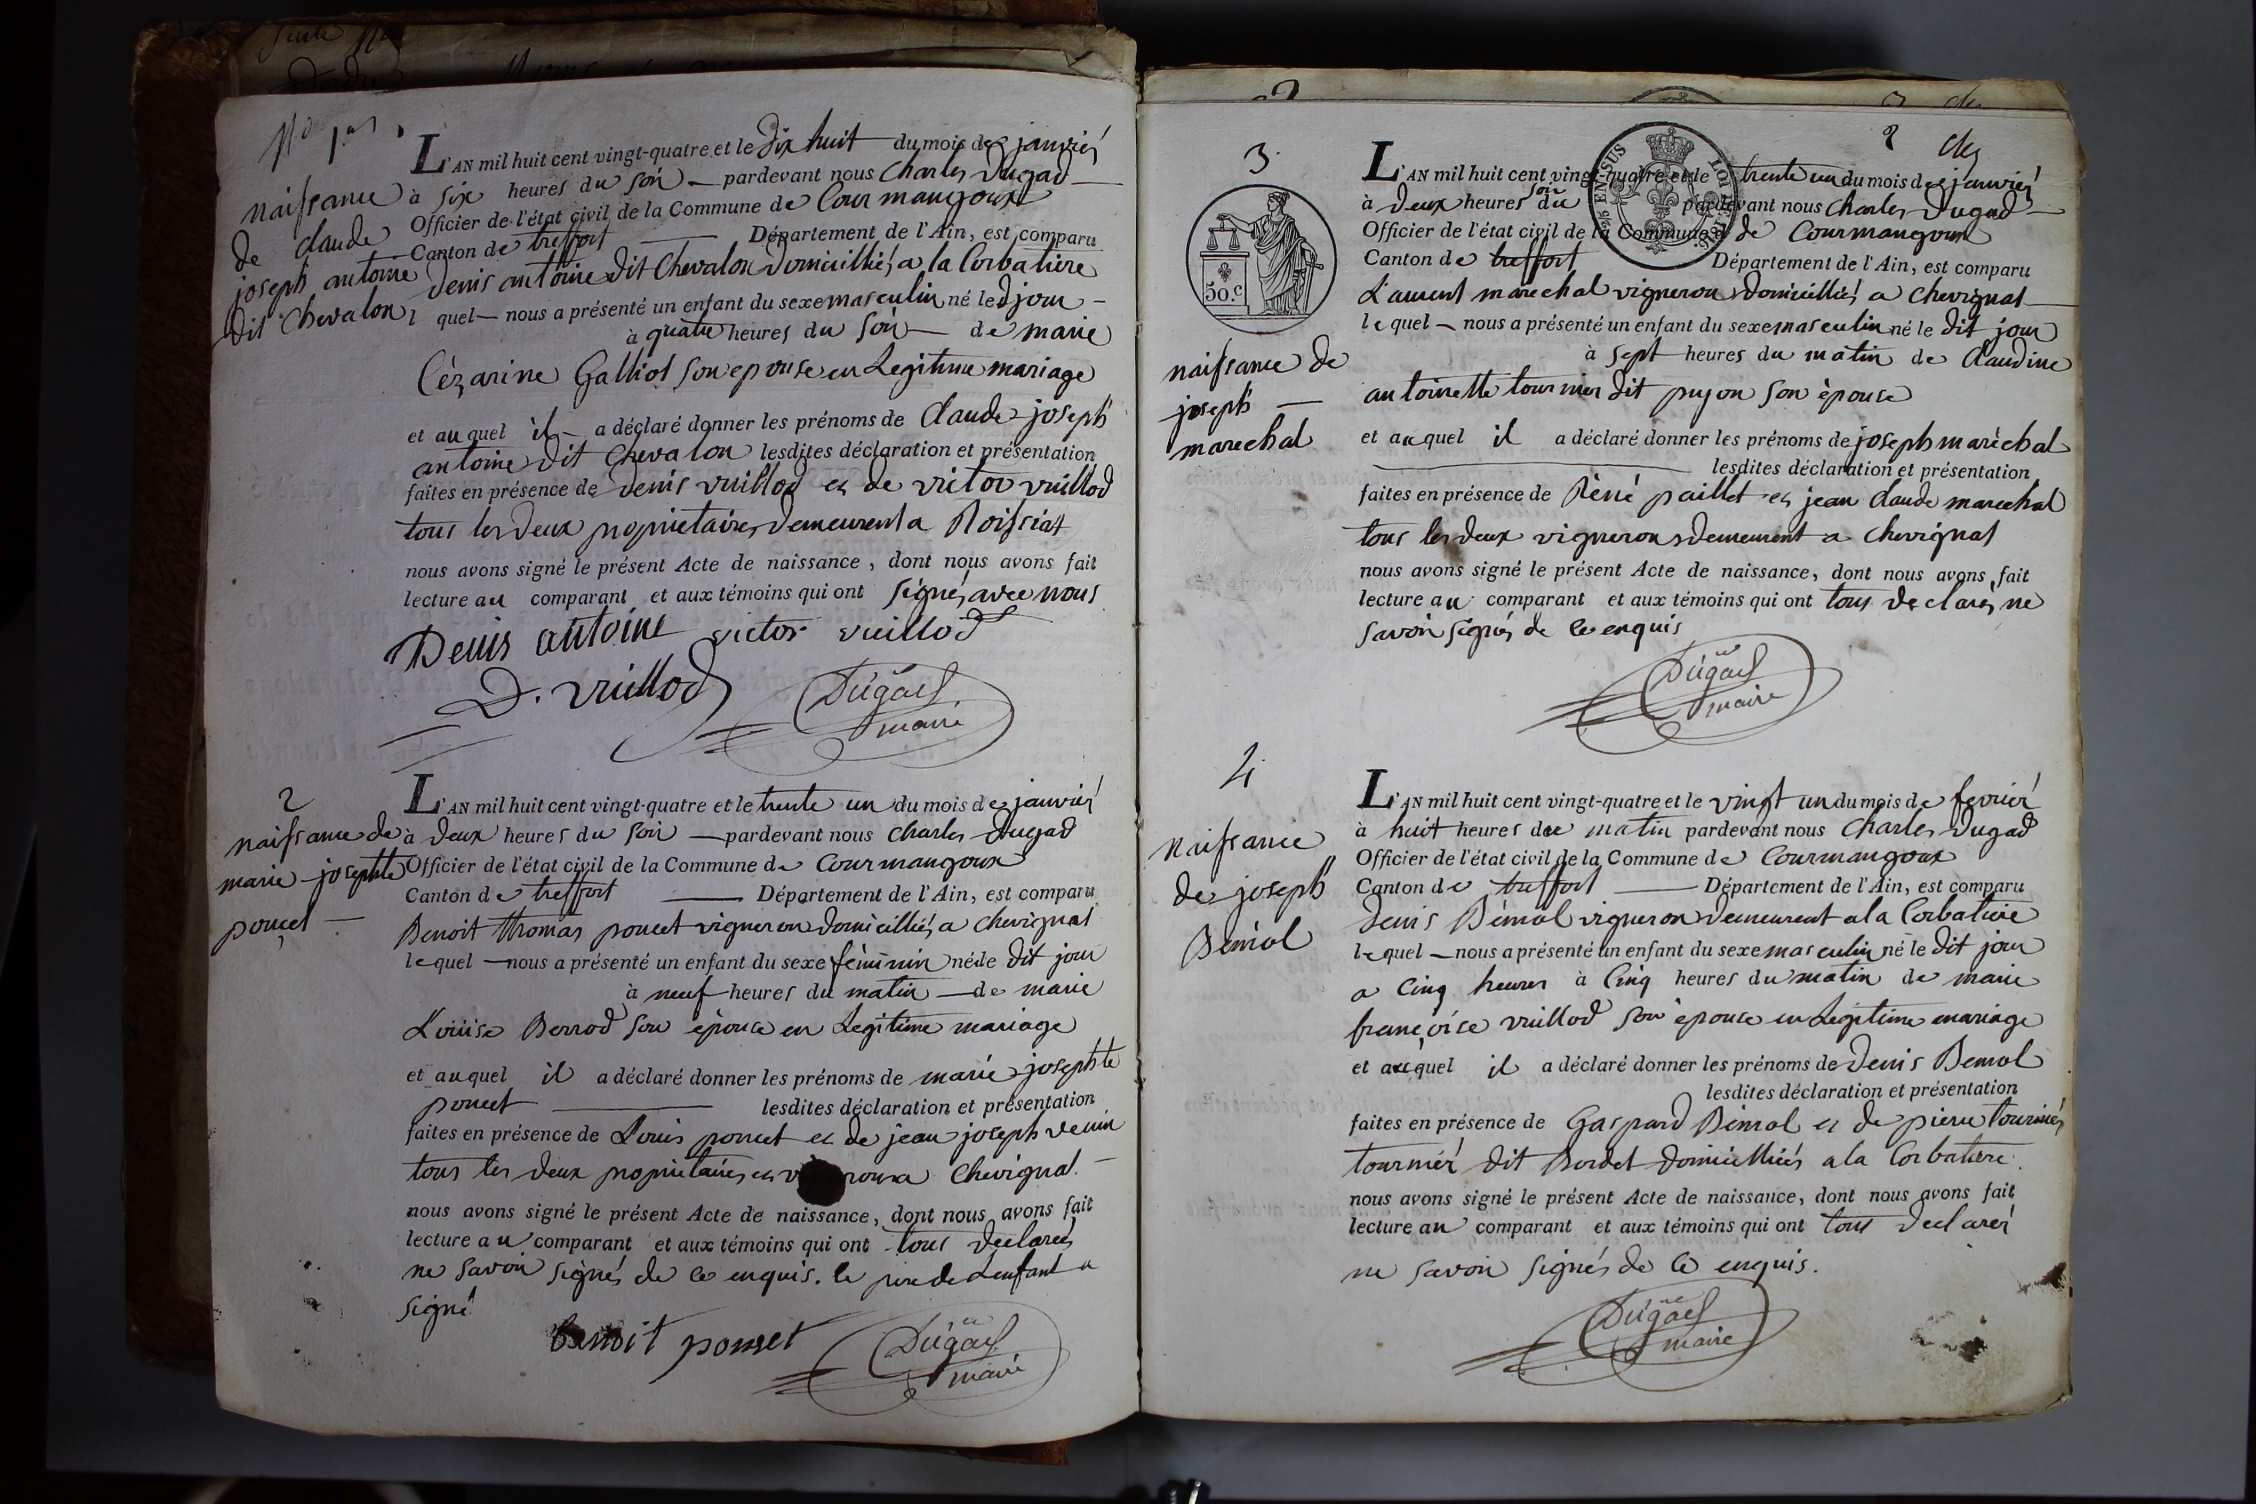 No 1er
naissance
de Claude
joseph antoine
dit Chevalon
L'AN mil huit cent vingt-quatre et le dix huit du mois de janvier
à six heures du soir — pardevant nous Charles Dugad
Officier de l'état civil de la Commune de Courmangoux
Canton de treffort — Département de l'Ain, est comparu
denis antoine dit Chevalon domicillié a la Corbatière
lequel — nous a présenté un enfant du sexe masculin né le d jour —
à quatre heures du soir — de marie
Cèzarine Galliot son epouse en Legitime mariage
et auquel il — a déclaré donner les prénoms de Claude joseph
antoine dit Chevalon lesdites déclaration et présentation
faites en présence de denis vuillod et de victor vuillod
tous les deux propriétaires demeurent a Roissiat
nous avons signé le présent Acte de naissance, dont nous avons fait
lecture au comparant et aux témoins qui ont signés avec nous
Denis antoine victor vuillod
D. vuillod Dugad
maire
2
naissance de
marie josephte
ponçet —
L'AN mil huit cent vingt-quatre et le trente un du mois de janvier
à deux heures du soir — pardevant nous Charles Dugad
Officier de l'état civil de la Commune de Courmangoux
Canton de treffort — Département de l'Ain, est comparu
Benoit thomas poncet vigneron domicilliés a chevignat
lequel — nous a présenté un enfant du sexe fèminin né le dit jour
à neuf heures du matin — de marie
Louise Berrod son èpouse en Legitime mariage
et auquel il a déclaré donner les prénoms de marie josephte
poncet — lesdites déclaration et présentation
faites en présence de Louis poncet et de jean joseph venin
tous les deux propriétaires et a Chevignat. —
nous avons signé le présent Acte de naissance, dont nous avons fait
lecture au comparant et aux témoins qui ont tous declarés
ne savoir signés de ce enquis. le pere de Lenfant a
signé
Benoit ponset Dugad
maire
3.
50.C
naissance de
joseph —
marechal
2
LOI
EN SUS
L'AN mil huit cent vingt-quatre et le trente un du mois de janvier
à deux heures du soir pardevant nous Charles Dugad —
Officier de l'état civil de la Commune de Courmangoux
Canton de treffort Département de l'Ain, est comparu
Laurent marechal vigneron domicilliés a chevignat —
lequel — nous a présenté un enfant du sexe masculin né le dit jour
à sept heures du matin de Claudine
antoinette tournier dit pujon son èpouse
et auquel il a déclaré donner les prénoms de joseph marèchal
— lesdites déclaration et présentation
faites en présence de Rènè paillet et jean claude marechal
tous les deux vignerons demeurent a chevignat
nous avons signé le présent Acte de naissance, dont nous avons fait
lecture au comparant et aux témoins qui ont tous declarés ne
savoir signés de ce enquis
Dugad
maire
4
naissance
de joseph
Bèmol
L'AN mil huit cent vingt-quatre et le vingt un du mois de fevrier
à huit heures du matin pardevant nous Charles Dugad
Officier de l'état civil de la Commune de Courmangoux
Canton de treffort — Département de l'Ain, est comparu
denis Bèmol vigneron demeurent a la Corbatiere
lequel — nous a présenté un enfant du sexe masculin né le dit jour
a cinq heures à Cinq heures du matin de marie
françoise vuillod son èpouse en Legitime mariage
et auquel il a déclaré donner les prénoms de denis Bemol
lesdites déclaration et présentation
faites en présence de Gaspard Bèmol et de pierre tournier
tournier dit Bordet domicilliés a la Corbatiere.
nous avons signé le présent Acte de naissance, dont nous avons fait
lecture au comparant et aux témoins qui ont tous declarés
ne savoir signés de ce enquis.
Dugad
maire